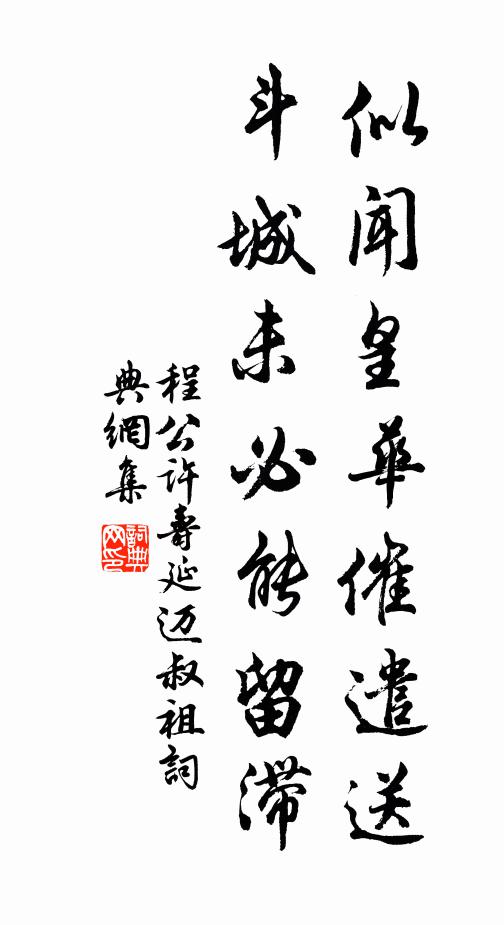 似聞皇華催遣送
斗城未必能留滯
程公許壽延迈叔祖詞
典網集
詞典网印